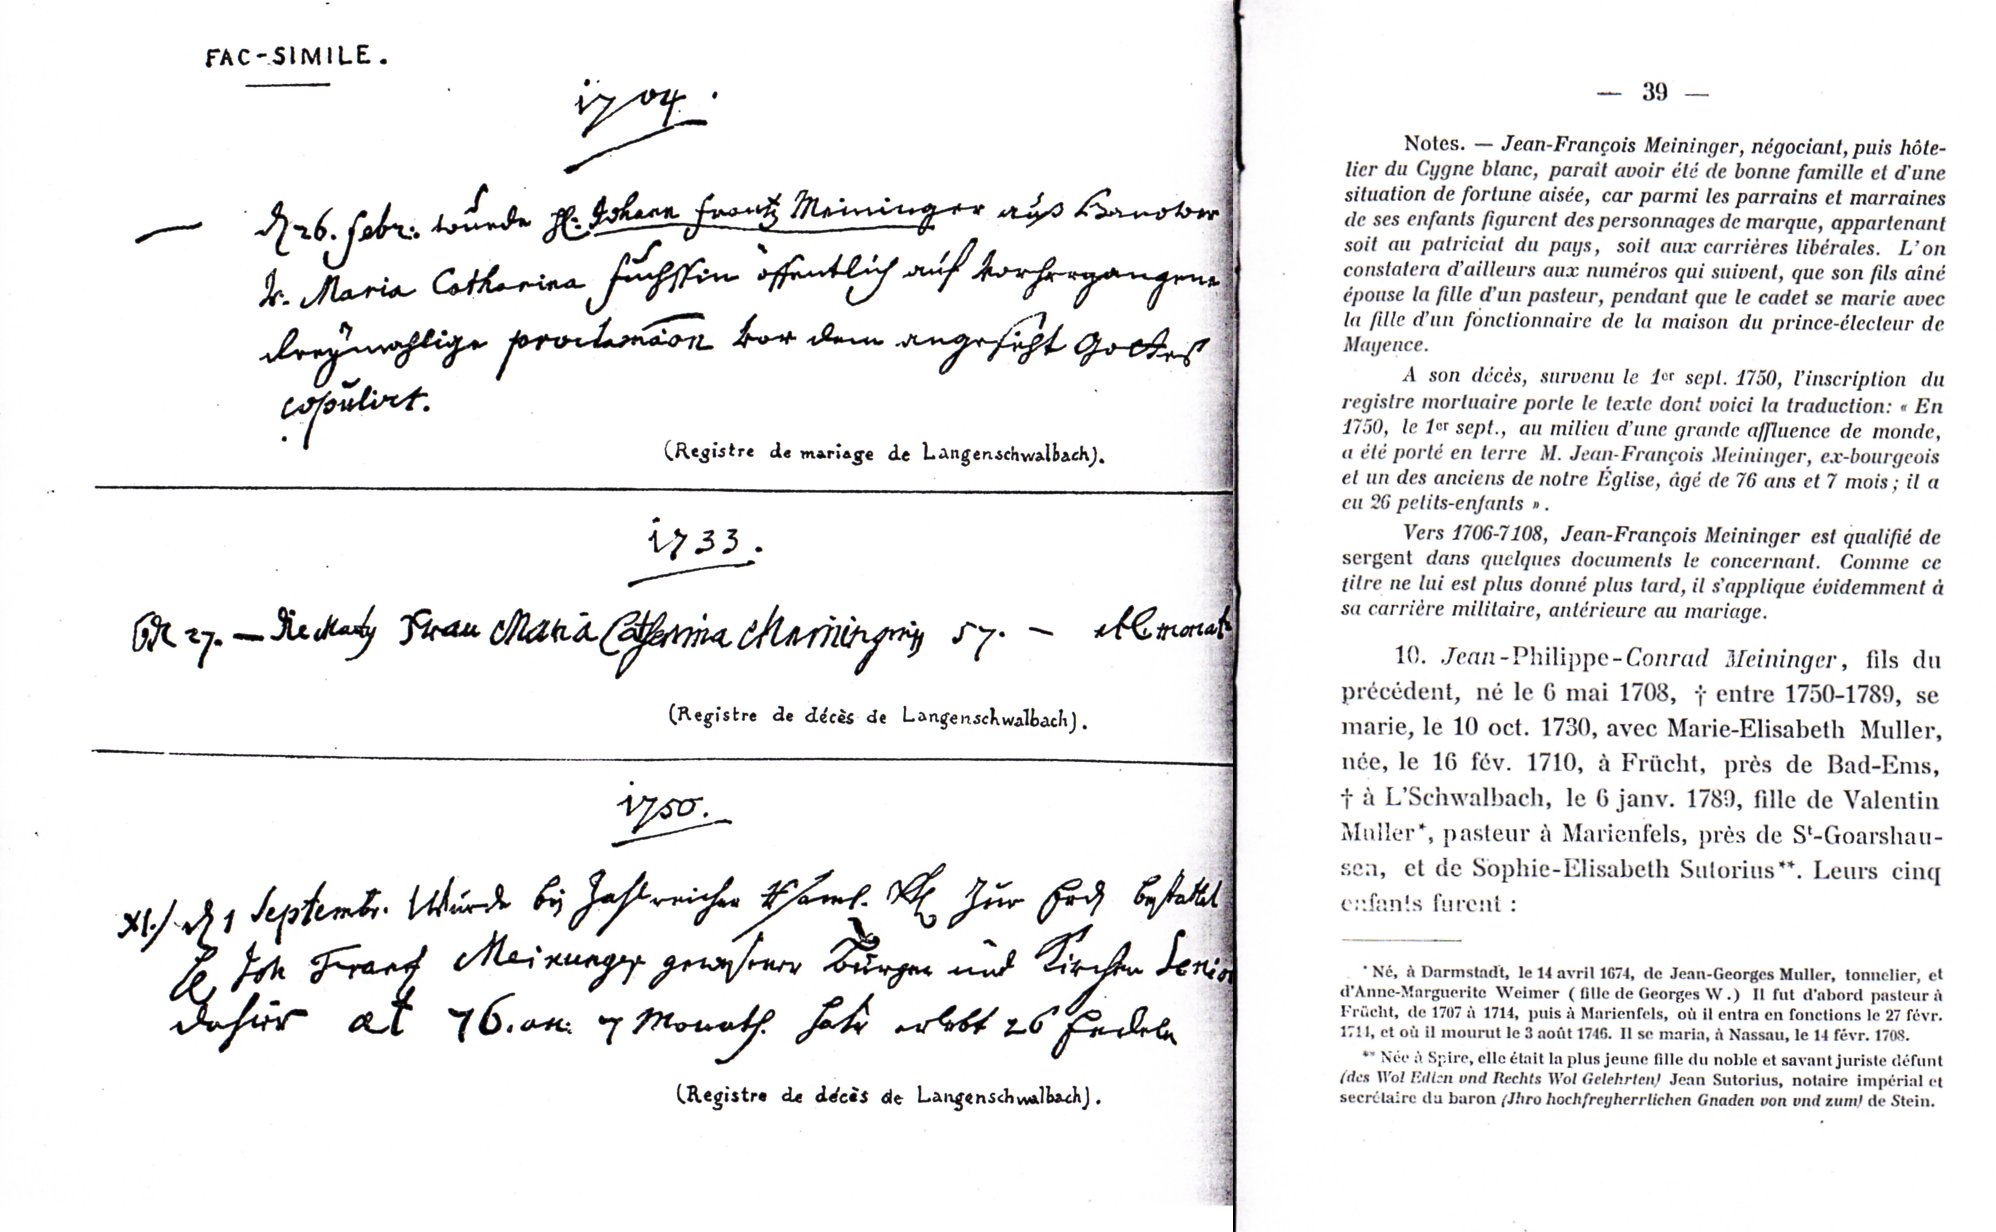 FAC-SIMILE.
1704.
26. Febr: wurde H: Johann Frantz Meininger auß Hanover
Maria Catharina Fuchssin öffentlich auf vorhergangene
dreymahlige proclamaon vor dem angesicht Gottes
copulirt.
(Registre de mariage de Langenschwalbach).
1733.
27. — Frau Maria Catherina Meiningerin 57. — monat
(Registre de décès de Langenschwalbach).
1750.
XI./ d 1 Septembr. Wurde bey Zahlreicher zur Erd bestattet
H. Joh Frantz Meinunger gewesener Burger und Kirchen Senior
dahier æt 76. an: 7 Monath. hatt erlebt 26 Enckeln
(Registre de décès de Langenschwalbach).
— 39 —
Notes. — Jean-François Meininger, négociant, puis hôte-
lier du Cygne blanc, paraît avoir été de bonne famille et d'une
situation de fortune aisée, car parmi les parrains et marraines
de ses enfants figurent des personnages de marque, appartenant
soit au patriciat du pays, soit aux carrières libérales. L'on
constatera d'ailleurs aux numéros qui suivent, que son fils aîné
épouse la fille d'un pasteur, pendant que le cadet se marie avec
la fille d'un fonctionnaire de la maison du prince-électeur de
Mayence.
A son décès, survenu le 1er sept. 1750, l'inscription du
registre mortuaire porte le texte dont voici la traduction: « En
1750, le 1er sept., au milieu d'une grande affluence de monde,
a été porté en terre M. Jean-François Meininger, ex-bourgeois
et un des anciens de notre Église, âgé de 76 ans et 7 mois; il a
eu 26 petits-enfants ».
Vers 1706-7108, Jean-François Meininger est qualifié de
sergent dans quelques documents le concernant. Comme ce
titre ne lui est plus donné plus tard, il s'applique évidemment à
sa carrière militaire, antérieure au mariage.
10. Jean-Philippe-Conrad Meininger, fils du
précédent, né le 6 mai 1708, † entre 1750-1789, se
marie, le 10 oct. 1730, avec Marie-Elisabeth Muller,
née, le 16 fév. 1710, à Frücht, près de Bad-Ems,
† à L'Schwalbach, le 6 janv. 1789, fille de Valentin
Muller*, pasteur à Marienfels, près de St-Goarshau-
sen, et de Sophie-Elisabeth Sutorius**. Leurs cinq
enfants furent :
* Né, à Darmstadt, le 14 avril 1674, de Jean-Georges Muller, tonnelier, et
d'Anne-Marguerite Weimer (fille de Georges W.) Il fut d'abord pasteur à
Frücht, de 1707 à 1714, puis à Marienfels, où il entra en fonctions le 27 févr.
1714, et où il mourut le 3 août 1746. Il se maria, à Nassau, le 14 févr. 1708.
** Née à Spire, elle était la plus jeune fille du noble et savant juriste défunt
(des Wol Edlen vnd Rechts Wol Gelehrten) Jean Sutorius, notaire impérial et
secrétaire du baron (Jhro hochfreyherrlichen Gnaden von vnd zum) de Stein.